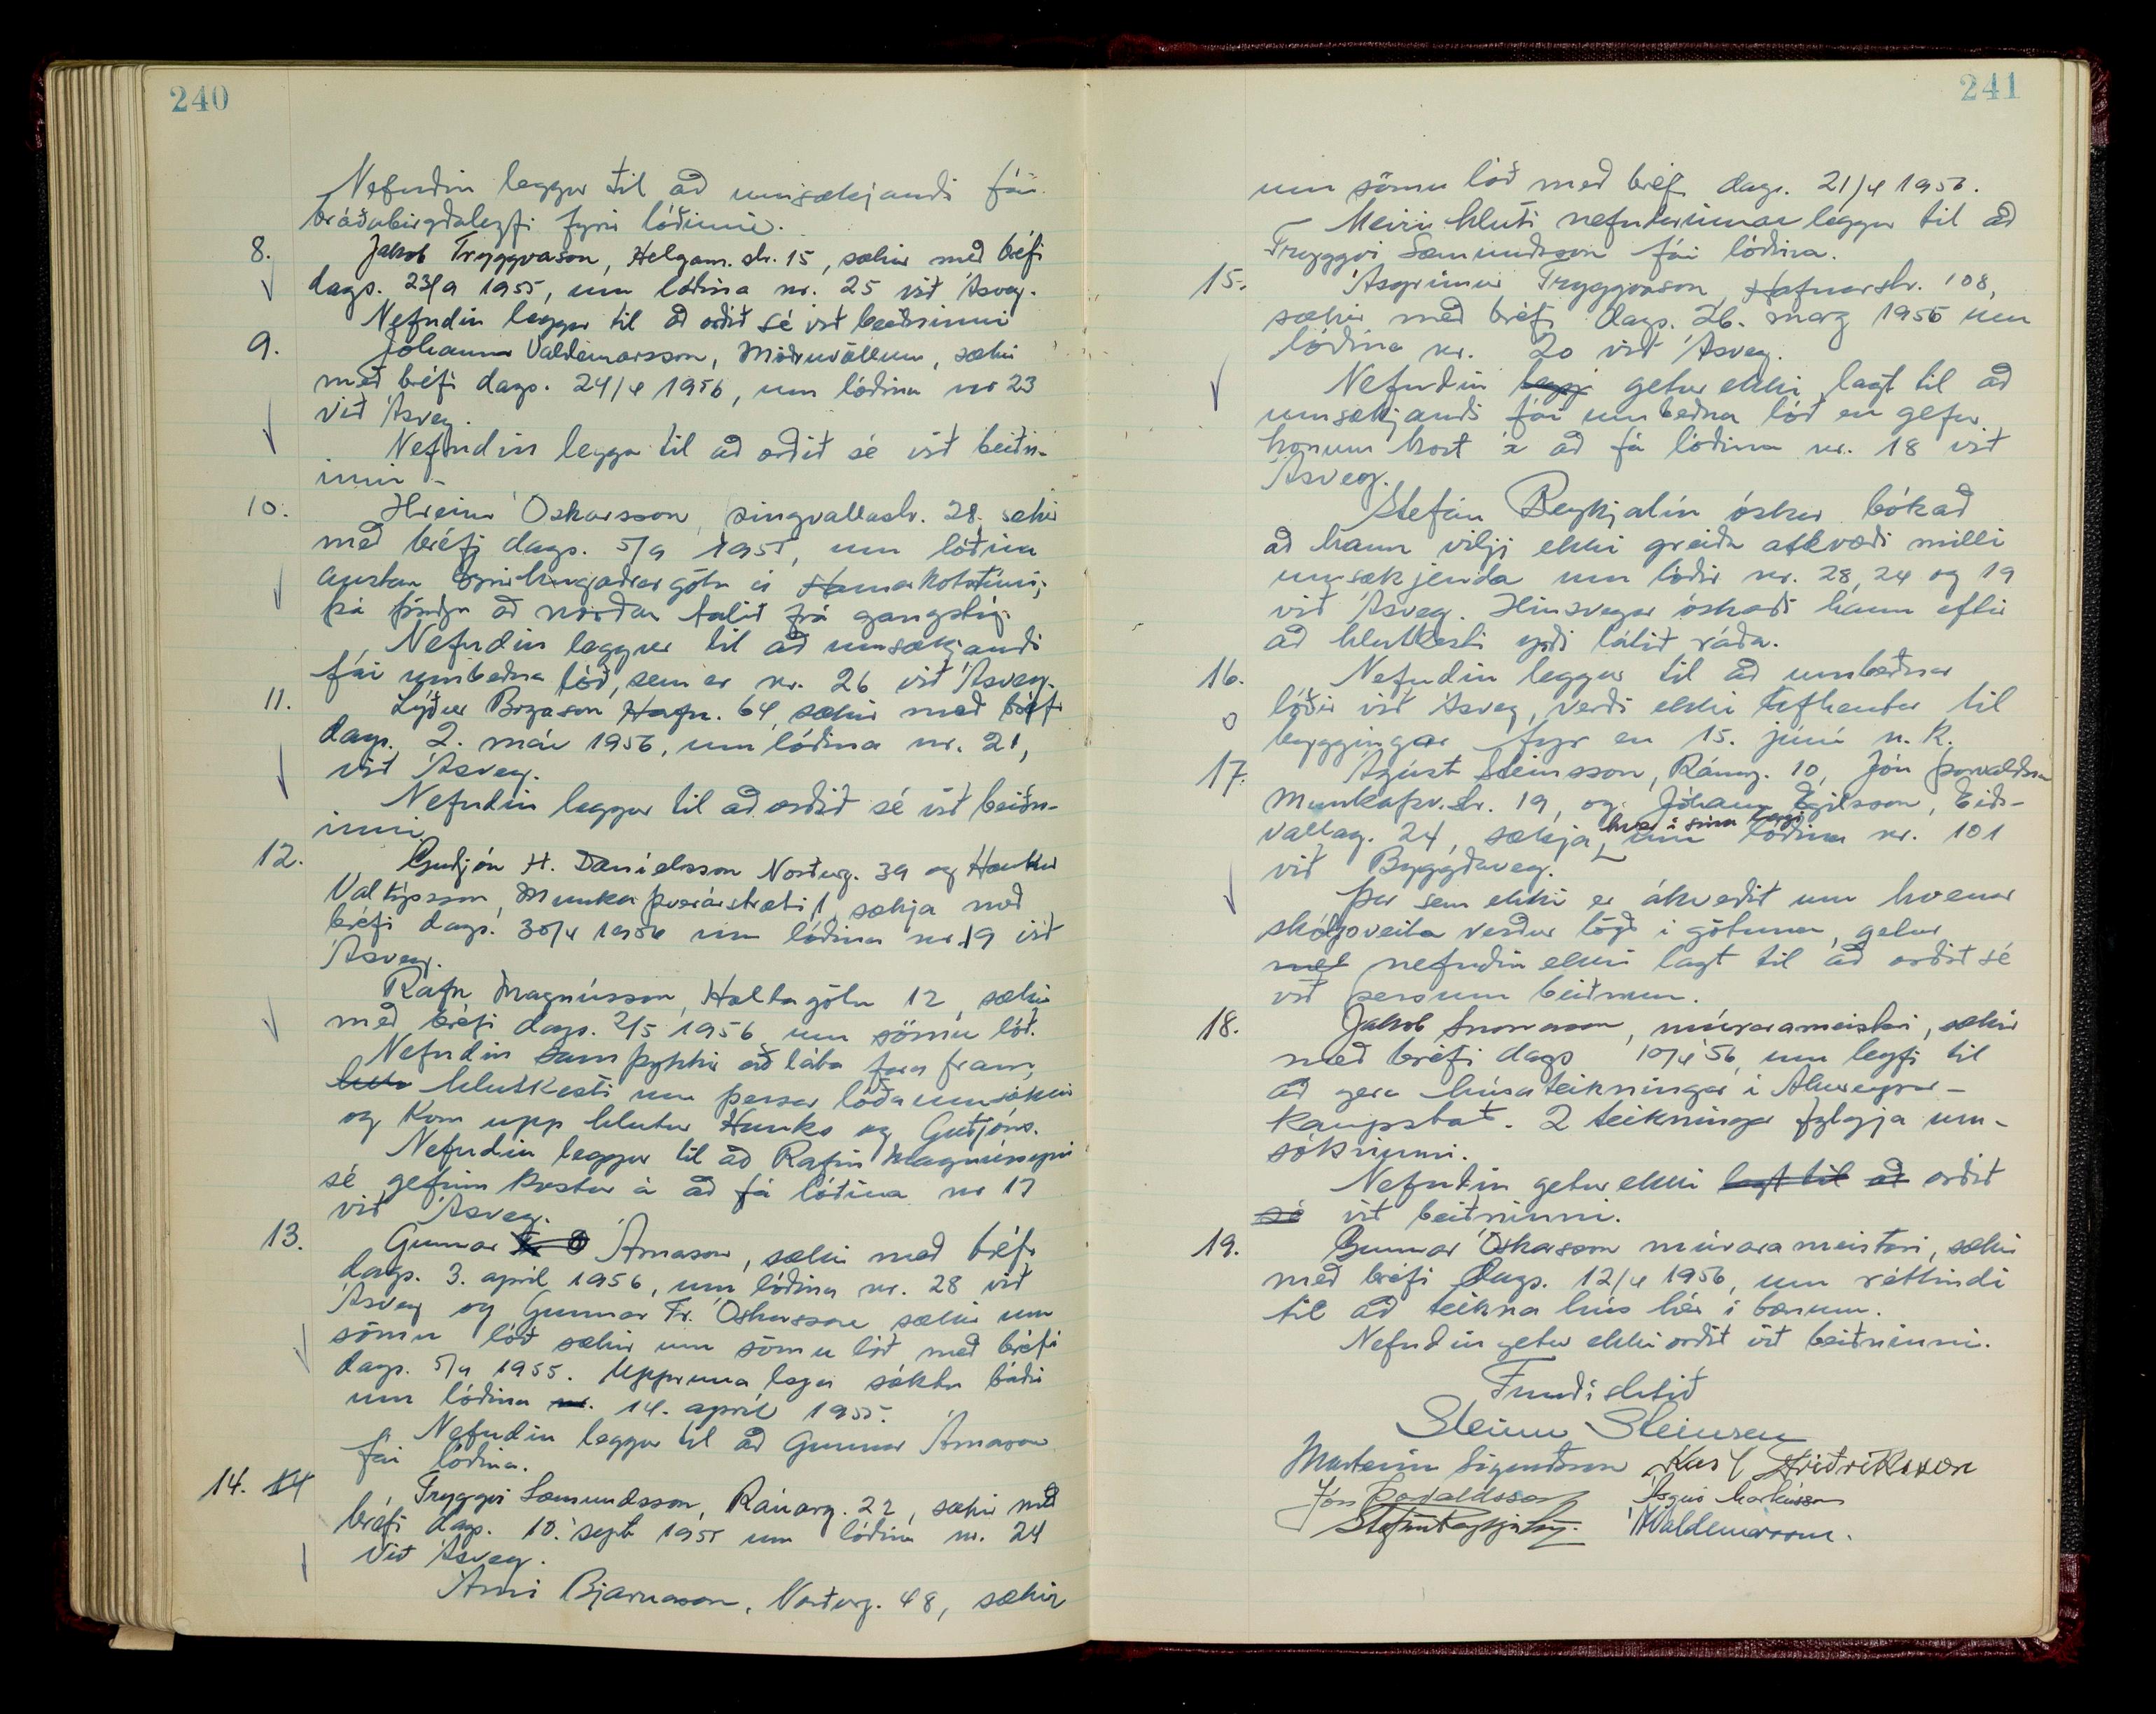 240
Nefndin leggur til að umsækjandi fái
bráðabirgðaleyfi fyrir lóðinni.
8. Jakob Tryggvason, Helgam. str. 15, sækir með bréfi
dags. 23/9 1955, um lóðina nr. 25 við Ásveg.
Nefndin leggur til að orðið sé við beiðninni
9. Jóhann Valdemarsson, Möðruvöllum, sækir
með bréfi dags. 24/4 1956, um lóðina nr 23
við Ásveg.
Nefndin leggur til að orðið sé við beiðn-
inni -
10. Hreinn Óskarsson, Þingvallastr. 28, sækir
með bréfi dags. 5/9 1955, um lóðina
austan götu í Hamarkotstúni,
þá þriðju að norðan talið frá gangstíg.
Nefndin leggur til að umsækjandi
fái umbeðna lóð, sem er nr. 26 við Ásveg.
11. Lýður Bogason Hafn. 64, sækir með bréfi
dags. 2. maí 1956, um lóðina nr. 21,
við Ásveg.
Nefndin leggur til að orðið sé við beiðn-
inni.
12. Guðjón H. Daníelsson Norðurg. 39 og Haukur
Valtýsson, Munkaþverárstræti 1, sækja með
bréfi dags. 30/4 1956 um lóðina nr. 19 við
Ásveg.
Rafn Magnússon, Holtagötu 12, sækir
með bréfi dags. 2/5 1956 um sömu lóð.
Nefndin samþykkir að láta fara fram
hlutkesti um þessar lóðaumsóknir
og kom upp hlutur Hauks og Guðjóns.
Nefndin leggur til að Rafni Magnússyni
sé gefinn kostur á að fá lóðina nr 17
við Ásveg.
13. Gunnar Árnason, sækir með bréfi
dags. 3. apríl 1956, um lóðina nr. 28 við
Ásveg og Gunnar Fr. Óskarsson sækir um
sömu lóð sækir um sömu lóð með bréfi
dags. 5/9 1955. Upprunalega sóktu báðir
um lóðina nr. 14. apríl 1955.
Nefndin leggur til að Gunnar Árnason
fái lóðina.
14. 14 Tryggvi Sæmundsson, Ránarg. 22, sækir með
bréfi dags. 10. sept 1955 um lóðina nr. 24
við Ásveg.
Árni Bjarnason, Norðurg. 48, sækir
241
um sömu lóð með bréfi dags. 21/4 1956.
- Meiri hluti nefndarinnar leggur til að
Tryggvi Sæmundsson fái lóðina.
15. Ásgrímur Tryggvason, Hafnarstr. 108,
sækir með bréfi dags. 26. marz 1956 um
lóðina nr. 20 við Ásveg.
Nefndin legg getur ekki lagt til að
umsækjandi fái umbeðna lóð en gefur
honum kost á að fá lóðina nr. 18 við
Ásveg.
Stefán Reykjalín óskar bókað
að hann vilji ekki greiða atkvæði milli
umsækjenda um lóðir nr. 28, 24 og 19
við Ásveg. Hinsvegar óskaði hann eftir
að hlutkesti yrði látið ráða.
16. Nefndin leggur til að umbeðnar
lóðir við Ásveg, verði ekki afhentar til
byggingar fyr en 15. júní n.k.
17. Ágúst Steinsson, Ránarg. 10, Jón Þorvaldsson
Munkaþv.str. 19, og Jóhann Egilsson, Eiðs-
vallag. 24, sækja, hver í sínu lagi um lóðina nr. 101
við Byggðaveg.
Þar sem ekki er ákveðið um hvenær
skólpveita verður lögð í götuna, getur
með nefndin ekki lagt til að orðið sé
við þessum beiðnum.
18. Jakob Snorrason, múrarameistari, sækir
með bréfi dags 10/4 '56, um leyfi til
að gera húsateikningar í Akureyrar-
kaupstað. 2 teikningar fylgja um-
sókninni.
Nefndin getur ekki lagt til að orðið
sé við beiðninni.
19. Gunnar Óskarsson múrarameistari, sækir
með bréfi dags. 12/4 1956, um réttindi
til að teikna hús hér í bænum.
Nefndin getur ekki orðið við beiðninni.
Fundi slitið
Steinn Steinsen
Marteinn Sigurðsson Karl Friðriksson
Jón Þorvaldsson Ásgeir Markússon
Stefán Reykjalín. Valdemarsson.